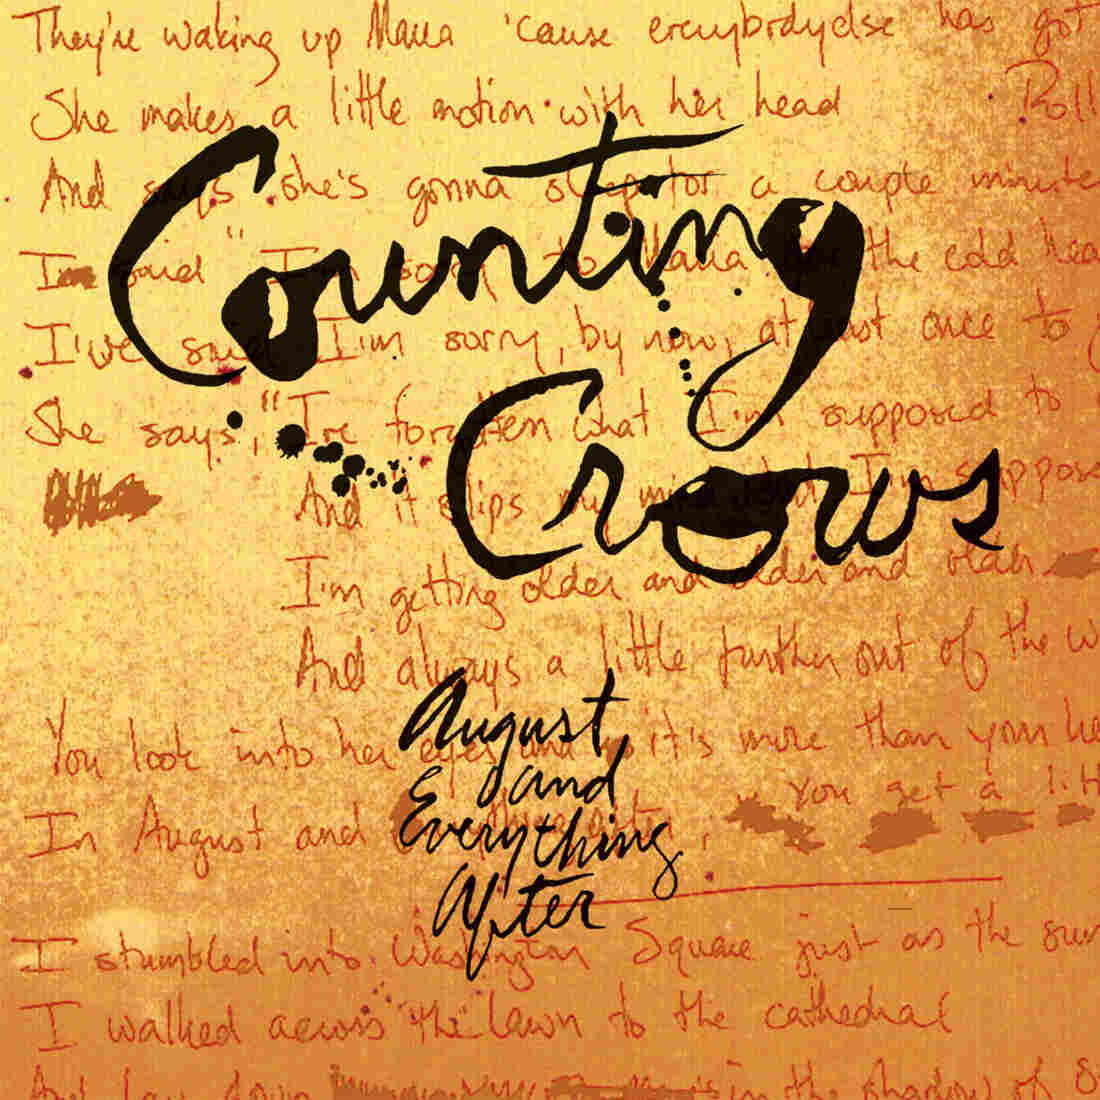 They're waking up Maria 'cause everybodyelse has got
She makes a little motion with her head
Roll
And says she's gonna sleep for a couple minute
Counting
I said "I'm sorry to Maria for the cold hea
I've said I'm sorry, by now, at least once to
Crows
She says, "I've forgotten what I'm supposed to
And it slips my mind what I'm suppose
I'm getting older and older and older
And always a little further out of the w
August
and
Everything
After
You look into her eyes and it's more than your he
You get a litt
In August and everything after,
I stumbled into Washington Square just as the sun
I walked across the lawn to the cathedral
And lay down in the shadow of S